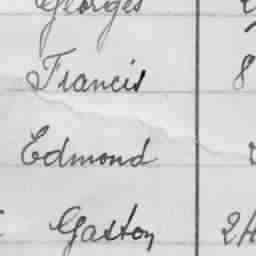 Georges
Francis 8
Edmond
Gaston 24